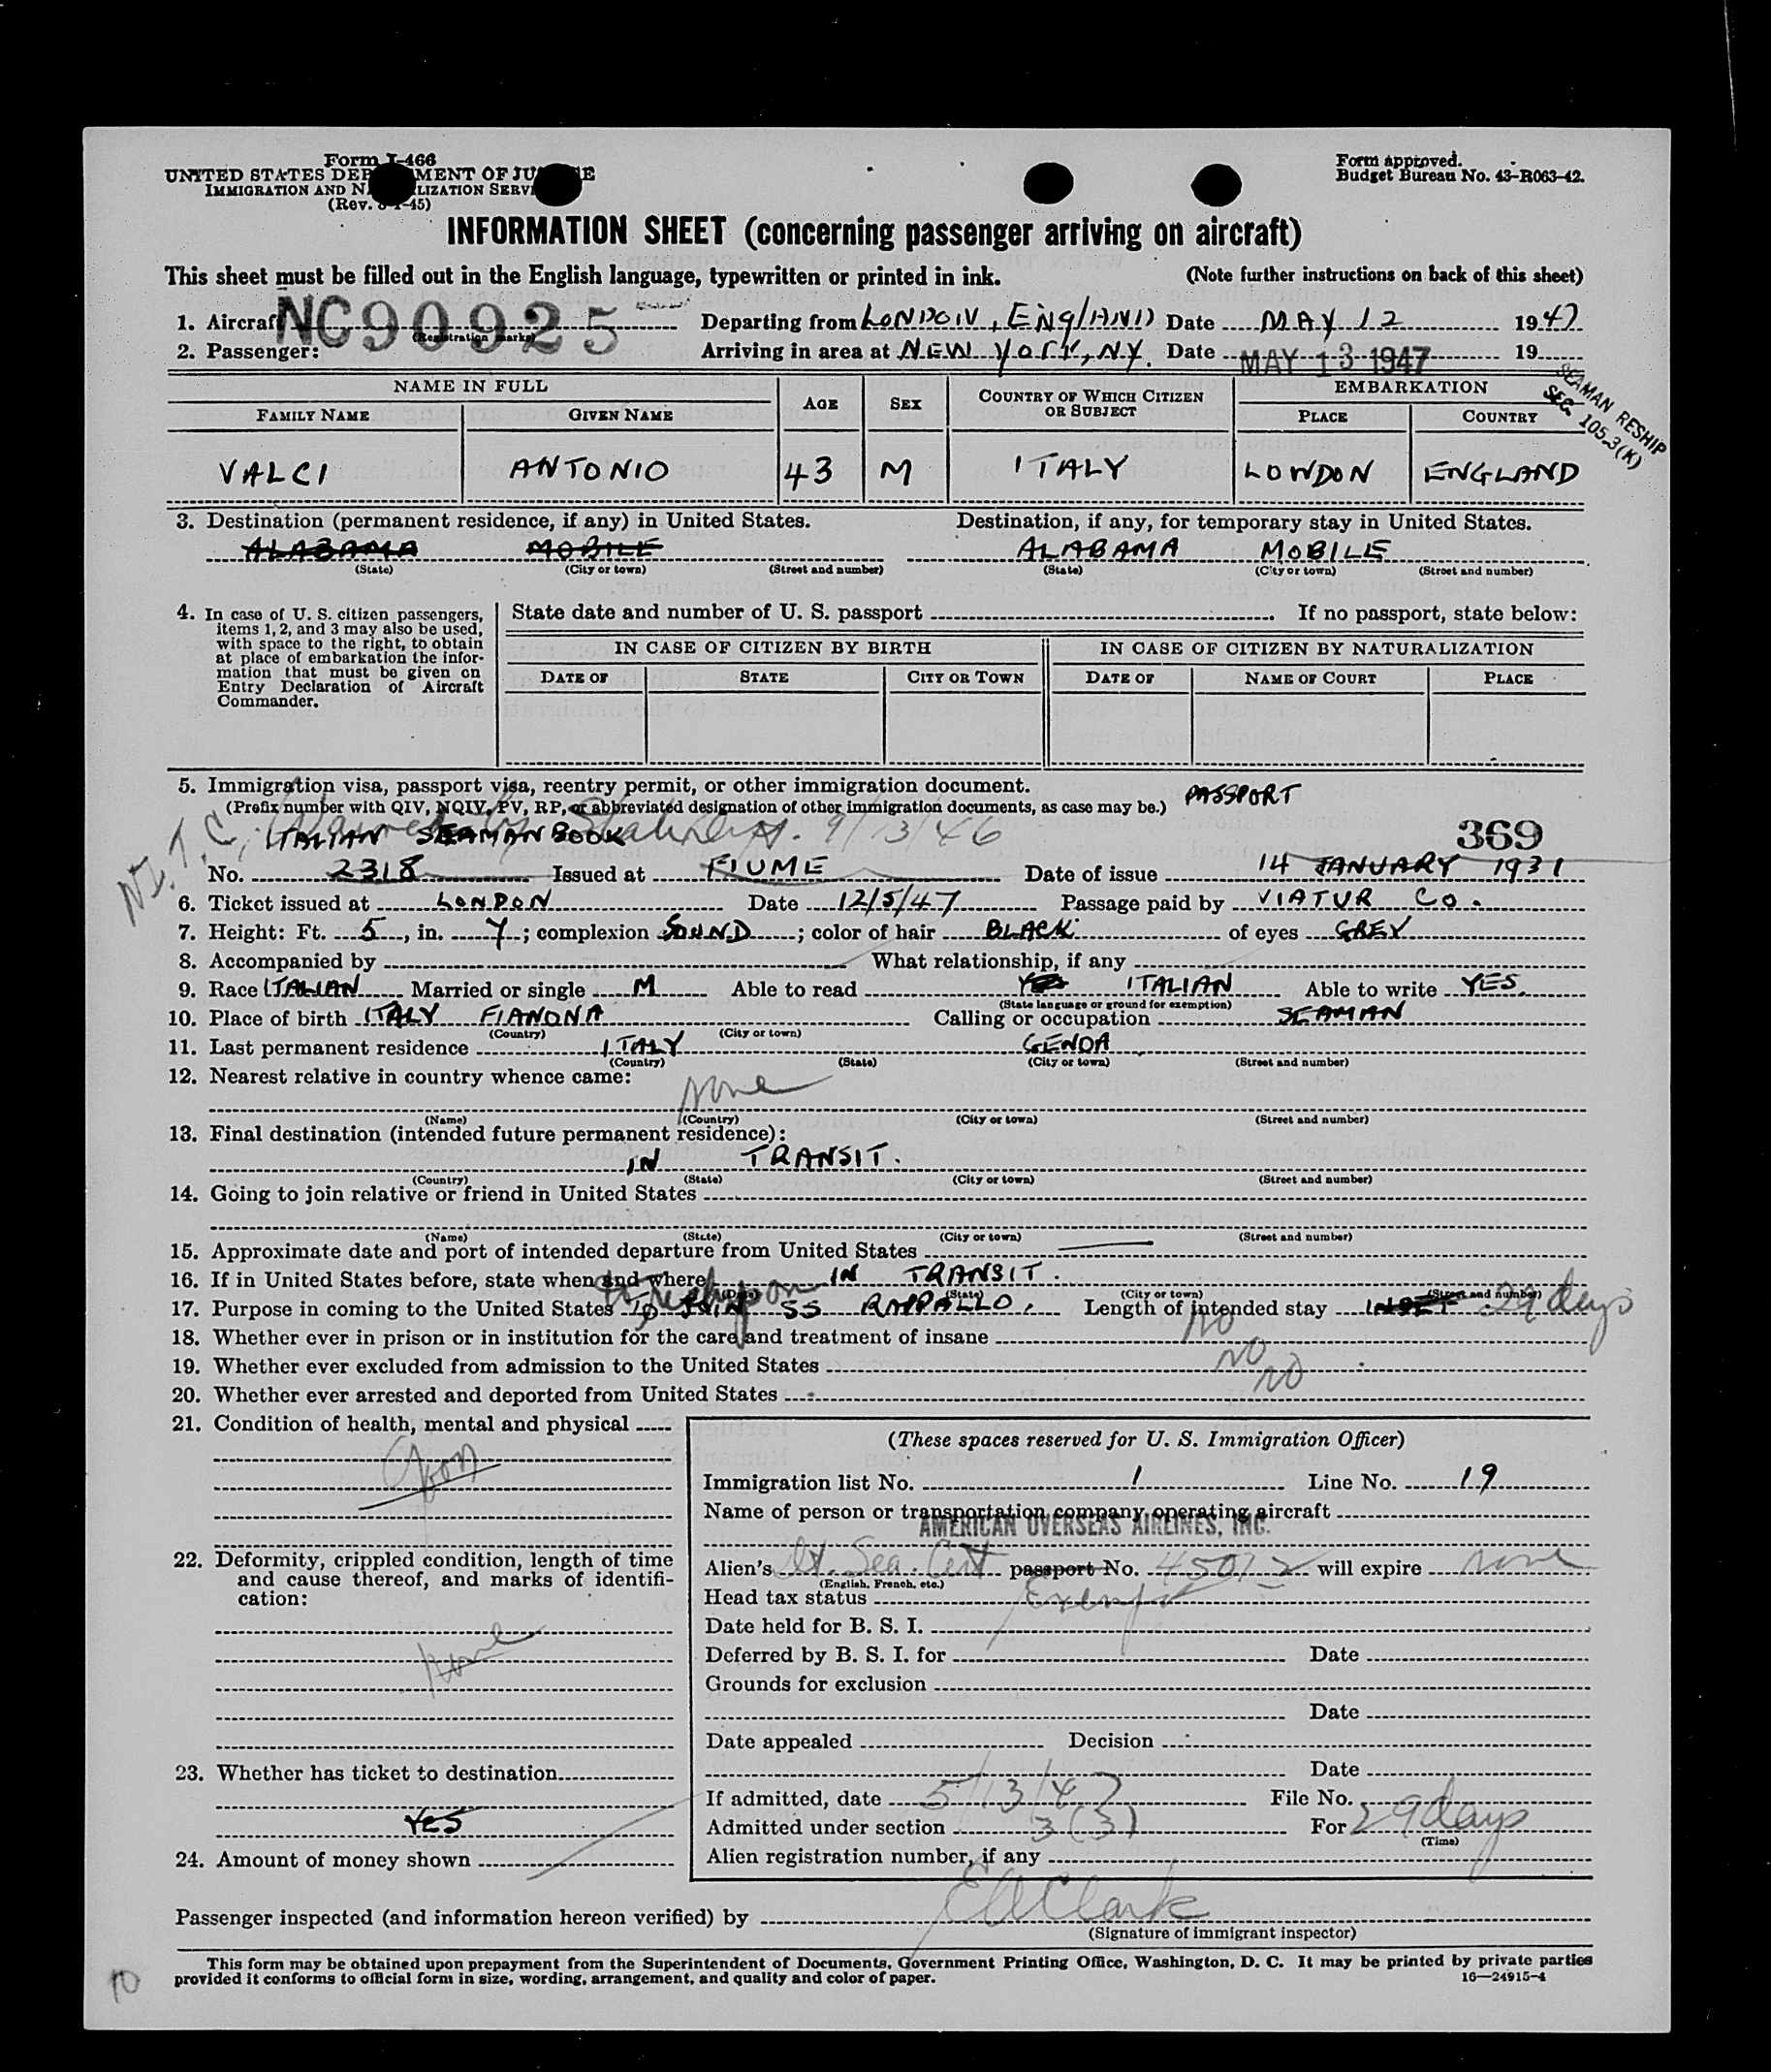 Form I-466
UNITED STATES DEPARTMENT OF JUSTICE
IMMIGRATION AND NATURALIZATION SERVICE
(Rev. 45)
Form approved.
Budget Bureau No. 43-R063-42.
INFORMATION SHEET (concerning passenger arriving on aircraft)
This sheet must be filled out in the English language, typewritten or printed in ink. (Note further instructions on back of this sheet)
1. Aircraft NC90925 (Registration marks) Departing from LONDON, ENGLAND Date MAY 12 1947
2. Passenger: Arriving in area at NEW YORK, NY. Date MAY 13 1947 19
SEAMAN RESHIP
SEC. 105.3(K)
NAME IN FULL AGE SEX COUNTRY OF WHICH CITIZEN OR SUBJECT EMBARKATION
FAMILY NAME GIVEN NAME PLACE COUNTRY
VALCI ANTONIO 43 M ITALY LONDON ENGLAND
3. Destination (permanent residence, if any) in United States. Destination, if any, for temporary stay in United States.
ALABAMA MOBILE ALABAMA MOBILE
(State) (City or town) (Street and number) (State) (City or town) (Street and number)
4. In case of U. S. citizen passengers, items 1, 2, and 3 may also be used, with space to the right, to obtain at place of embarkation the information that must be given on Entry Declaration of Aircraft Commander.
State date and number of U. S. passport If no passport, state below:
IN CASE OF CITIZEN BY BIRTH IN CASE OF CITIZEN BY NATURALIZATION
DATE OF STATE CITY OR TOWN DATE OF NAME OF COURT PLACE
5. Immigration visa, passport visa, reentry permit, or other immigration document.
(Prefix number with QIV, NQIV, PV, RP, or abbreviated designation of other immigration documents, as case may be.) PASSPORT
ITALIAN SEAMAN BOOK 9/13/46 369
No. 2318 Issued at FIUME Date of issue 14 JANUARY 1931
6. Ticket issued at LONDON Date 12/5/47 Passage paid by VIATUR CO.
7. Height: Ft. 5, in. 7; complexion SOUND; color of hair BLACK of eyes GREY
8. Accompanied by What relationship, if any
9. Race ITALIAN Married or single M Able to read YES ITALIAN Able to write YES.
(State language or ground for exemption)
10. Place of birth ITALY FIANONA Calling or occupation SEAMAN
(Country) (City or town)
11. Last permanent residence ITALY GENOA
(Country) (State) (City or town) (Street and number)
12. Nearest relative in country whence came: none
(Name) (Country) (City or town) (Street and number)
13. Final destination (intended future permanent residence):
IN TRANSIT.
(Country) (State) (City or town) (Street and number)
14. Going to join relative or friend in United States
(Name) (State) (City or town) (Street and number)
15. Approximate date and port of intended departure from United States
16. If in United States before, state when and where IN TRANSIT.
(State) (City or town) (Street and number)
to reship on
17. Purpose in coming to the United States TO JOIN SS RAPALLO. Length of intended stay 29 days
18. Whether ever in prison or in institution for the care and treatment of insane no
19. Whether ever excluded from admission to the United States no
20. Whether ever arrested and deported from United States no
21. Condition of health, mental and physical
Good
22. Deformity, crippled condition, length of time and cause thereof, and marks of identification:
none
23. Whether has ticket to destination
YES
24. Amount of money shown
(These spaces reserved for U. S. Immigration Officer)
Immigration list No. 1 Line No. 19
Name of person or transportation company operating aircraft
AMERICAN OVERSEAS AIRLINES, INC.
Alien's It. Sea. Cert passport No. 45072 will expire none
(English, French, etc.)
Head tax status Exempt
Date held for B. S. I.
Deferred by B. S. I. for Date
Grounds for exclusion
Date
Date appealed Decision
Date
If admitted, date 5/13/47 File No.
Admitted under section 3(3) For 29 days
(Time)
Alien registration number, if any
Passenger inspected (and information hereon verified) by EAClark
(Signature of immigrant inspector)
This form may be obtained upon prepayment from the Superintendent of Documents, Government Printing Office, Washington, D. C. It may be printed by private parties
provided it conforms to official form in size, wording, arrangement, and quality and color of paper. 16—24915-4
10